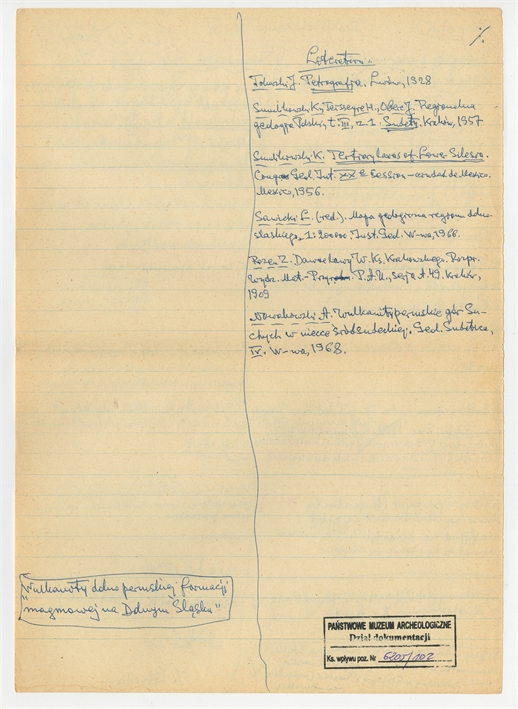 %
Literatura:
Tokarski J. Petrografja. Lwów, 1928
Smulikowski K, Teisseyre H., Oberc J. Regionalna
geologja Polski, t. III, z. 1. Sudety. Kraków, 1957
Smulikowski K. Tertiary lavas of Lower Silesia.
Congr. Geol. Int. XX e Session – ciudad de Mexico.
Mexico, 1956.
Sawicki L. (red.). Mapa geologiczna regionu dolno-
śląskiego, 1:200000. Inst. Geol. W-wa, 1966.
Rozen Z. Dawne lawy W. Ks. Krakowskiego. Rozpr.
Wydz. Mat.-Przyr. P.A.U., serja A. 49. Kraków,
1909
Nowakowski A. Wulkanity permskie gór Su-
chych w niecce śródsudeckiej. Geol. Sudetica,
IV. W-wa, 1968.
"Wulkanity dolno permskiej formacji
magmowej na Dolnym Śląsku"
PAŃSTWOWE MUZEUM ARCHEOLOGICZNE
Dział dokumentacji
Ks. wpływu poz. Nr 6205/102